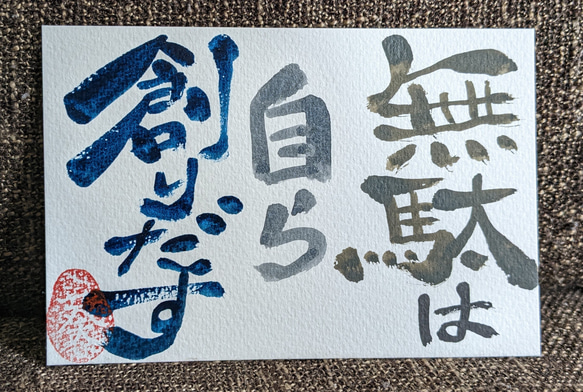 無駄は
自ら
創りだす